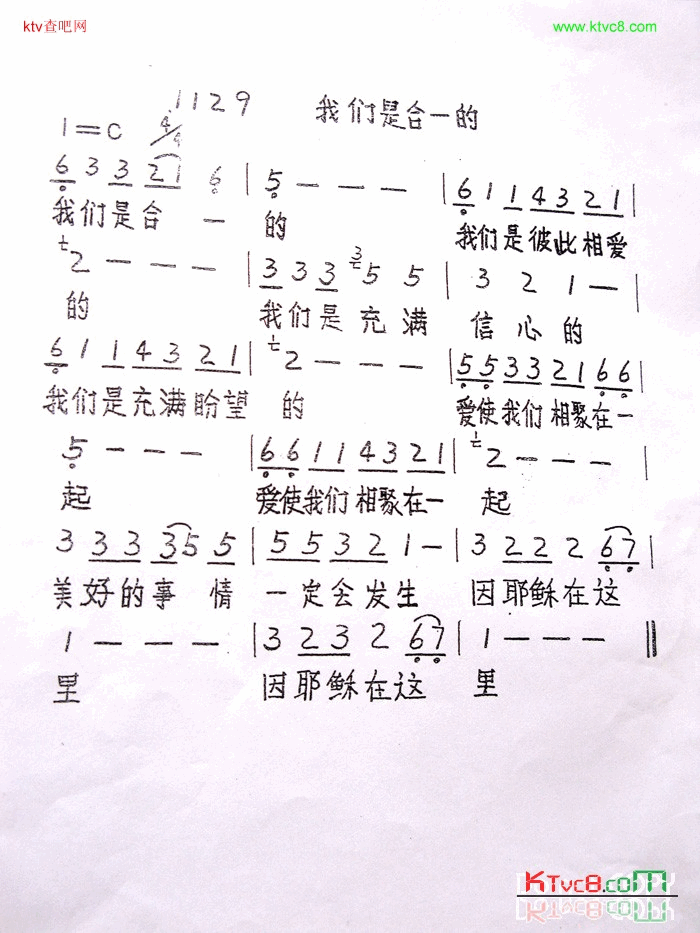 ktv查吧网
www.ktvc8.com
1129 我们是合一的
1=C 4/4
6 3 3 2 1 6 | 5 - - - | 6 1 1 4 3 2 1 |
我们是合一 的 我们是彼此相爱
2 - - - | 3 3 3 5 5 | 3 2 1 - |
的 我们是充满 信心的
6 1 1 4 3 2 1 | 2 - - - | 5 5 3 3 2 1 6 6 |
我们是充满盼望 的 爱使我们相聚在一
5 - - - | 6 6 1 1 4 3 2 1 | 2 - - - |
起 爱使我们相聚在一 起
3 3 3 3 5 5 | 5 5 3 2 1 - | 3 2 2 2 6 7 |
美好的事情 一定会发生 因耶稣在这
1 - - - | 3 2 3 2 6 7 | 1 - - - ‖
里 因耶稣在这 里
KTvc8.com